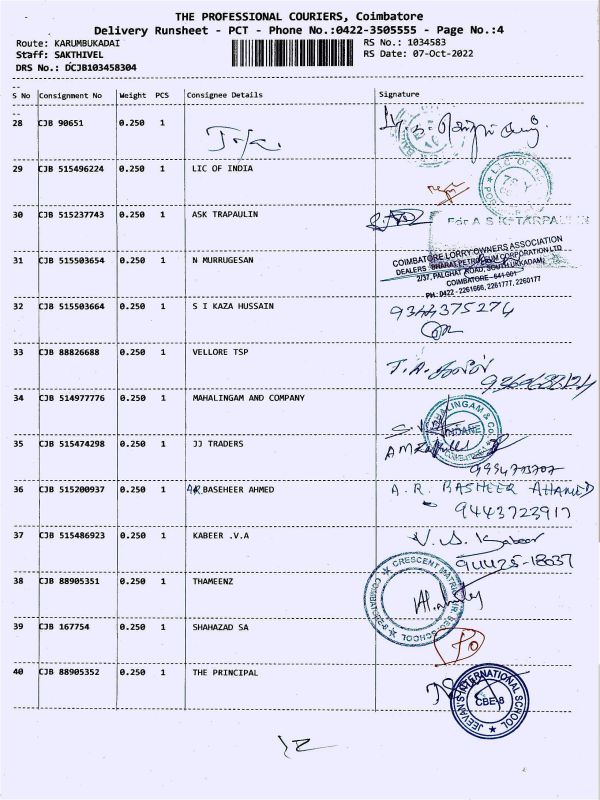 THE PROFESSIONAL COURIERS, Coimbatore
Delivery Runsheet - PCT - Phone No.:0422-3505555 - Page No.:4
Route: KARUMBUKADAI RS No.: 1034583
Staff: SAKTHIVEL RS Date: 07-Oct-2022
DRS No.: DCJB103458304
S No Consignment No Weight PCS Consignee Details Signature
28 CJB 90651 0.250 1
29 CJB 515496224 0.250 1 LIC OF INDIA
30 CJB 515237743 0.250 1 ASK TRAPAULIN
For A S K TARPAULIN
31 CJB 515503654 0.250 1 N MURRUGESAN
COIMBATORE LORRY OWNERS ASSOCIATION
DEALERS BHARAT PETROLEUM CORPORATION LTD
2/37, PALGHAT ROAD, SOUTH UKKADAM,
COIMBATORE - 641 001
PH: 0422 - 2261666, 2261777, 2260177
32 CJB 515503664 0.250 1 S I KAZA HUSSAIN
9344375274
33 CJB 88826688 0.250 1 VELLORE TSP
34 CJB 514977776 0.250 1 MAHALINGAM AND COMPANY
MAHALINGAM & CO
INDANE
35 CJB 515474298 0.250 1 JJ TRADERS
36 CJB 515200937 0.250 1 A.R.BASEHEER AHMED
A. R. BASHEER AHAMED
9443723917
37 CJB 515486923 0.250 1 KABEER .V.A
V. A. Kabeer
94425-18037
38 CJB 88905351 0.250 1 THAMEENZ
CRESCENT MATRI HR SEC SCHOOL
COIMBATORE-8
39 CJB 167754 0.250 1 SHAHAZAD SA
40 CJB 88905352 0.250 1 THE PRINCIPAL
JEEVAN'S INTERNATIONAL SCHOOL
CBE-8